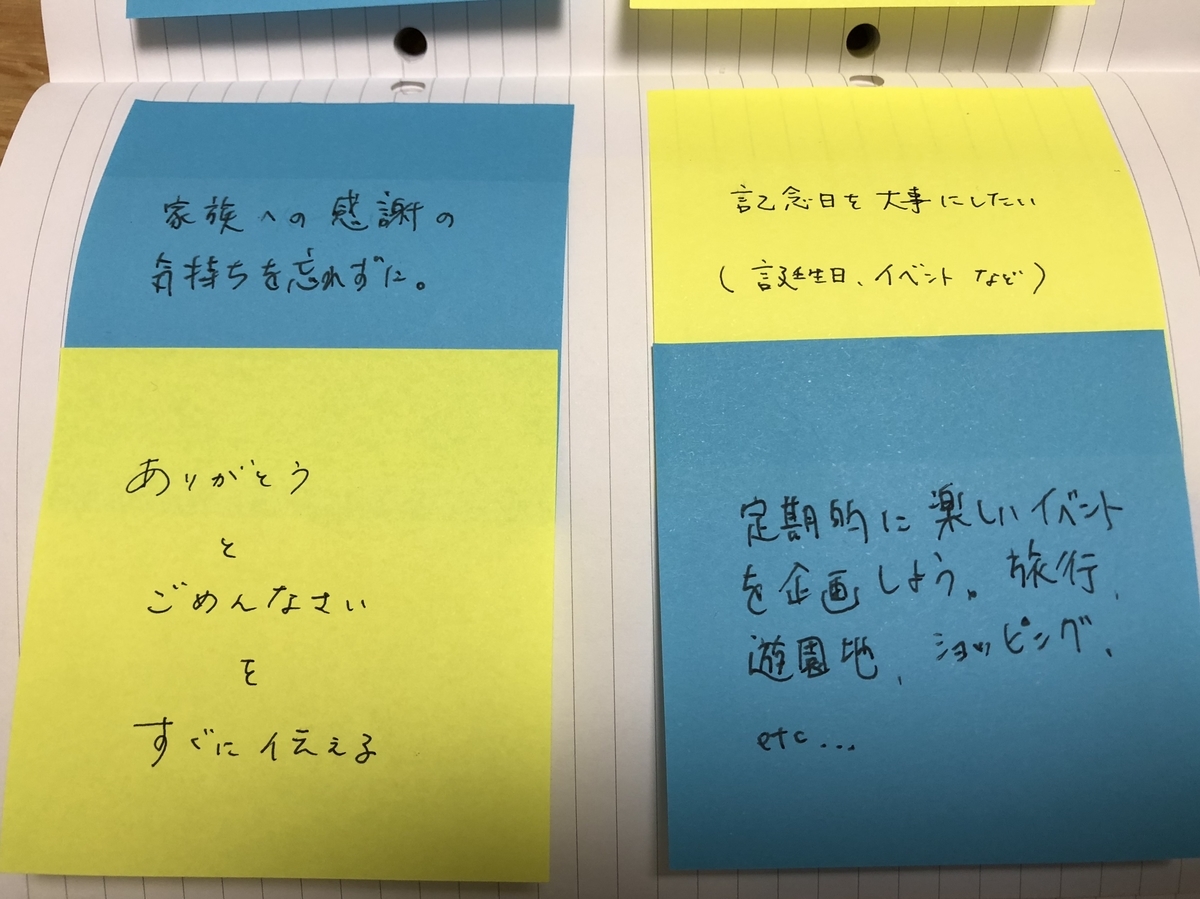 家族への感謝の
気持ちを忘れずに。
ありがとう
と
ごめんなさい
を
すぐに伝える
記念日を大事にしたい
(誕生日、イベントなど)
定期的に楽しいイベント
を企画しよう。旅行、
遊園地、ショッピング、
etc...